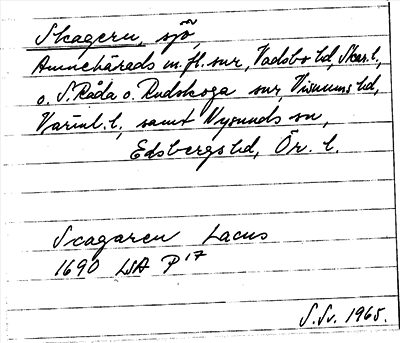 Skagern, sjö,
Amnehärads m.fl. snr, Vadsbo hd, Skar. l.,
o. S. Råda o. Rudskoga snr, Visnums hd,
Värml. l., samt Nysunds sn,
Edsbergs hd, Ör. l.
Scagaren Lacus
1690 LSA P17
S.Sv. 1965.